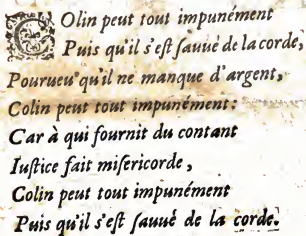 COlin peut tout impunément
Puis qu'il s'eſt ſauué de la corde,
Pourueu qu'il ne manque d'argent,
Colin peut tout impunément:
Car à qui fournit du contant
Iuſtice fait miſericorde,
Colin peut tout impunément
Puis qu'il s'eſt ſauué de la corde.